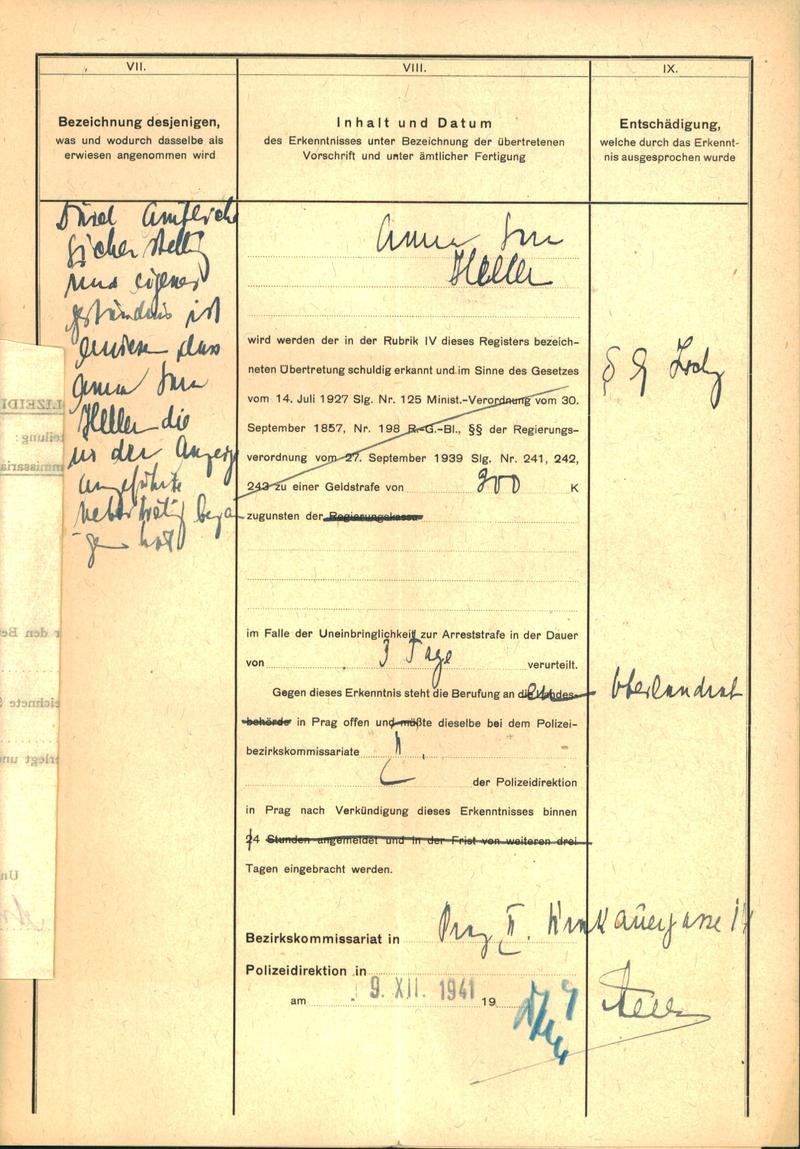 VII.
Bezeichnung desjenigen,
was und wodurch dasselbe als
erwiesen angenommen wird
Sicherstellg
und eigenes
geständnis ist
erwiesen dass
Anna Sara
Heller die
in der Anzeige
angeführte
hat
VIII.
Inhalt und Datum
des Erkenntnisses unter Bezeichnung der übertretenen
Vorschrift und unter ämtlicher Fertigung
Anna Sara
Heller
wird werden der in der Rubrik IV dieses Registers bezeich-
neten Übertretung schuldig erkannt und im Sinne des Gesetzes
vom 14. Juli 1927 Slg. Nr. 125 Minist.-Verordnung vom 30.
September 1857, Nr. 198 R.-G.-Bl., §§ der Regierungs-
verordnung vom 27. September 1939 Slg. Nr. 241, 242,
243 zu einer Geldstrafe von 300 K
zugunsten der Regierungskasse
im Falle der Uneinbringlichkeit zur Arreststrafe in der Dauer
von 3 Tage verurteilt.
Gegen dieses Erkenntnis steht die Berufung an die Landes- Oberlandrat
behörde in Prag offen und müßte dieselbe bei dem Polizei-
bezirkskommissariate II.
der Polizeidirektion
in Prag nach Verkündigung dieses Erkenntnisses binnen
24 Stunden angemeldet und in der Frist von weiteren drei
Tagen eingebracht werden.
Bezirkskommissariat in Prag II.
Polizeidirektion in
am 9. XII. 1941 19
IX.
Entschädigung,
welche durch das Erkennt-
nis ausgesprochen wurde